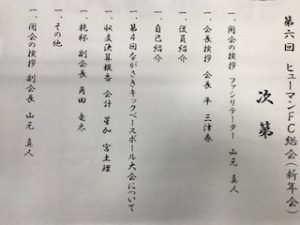 第六回 ヒューマンFC総会(新年会)
次第
一、開会の挨拶 ファシリテーター 山元 真人
一、会長挨拶 会長 半 三津春
一、役員紹介
一、自己紹介
一、第4回ながさきキックベースボール大会について
一、収支決算報告 会計 星加 宮土理
一、乾杯 副会長 角田 竜太
一、その他
一、閉会の挨拶 副会長 山元 真人